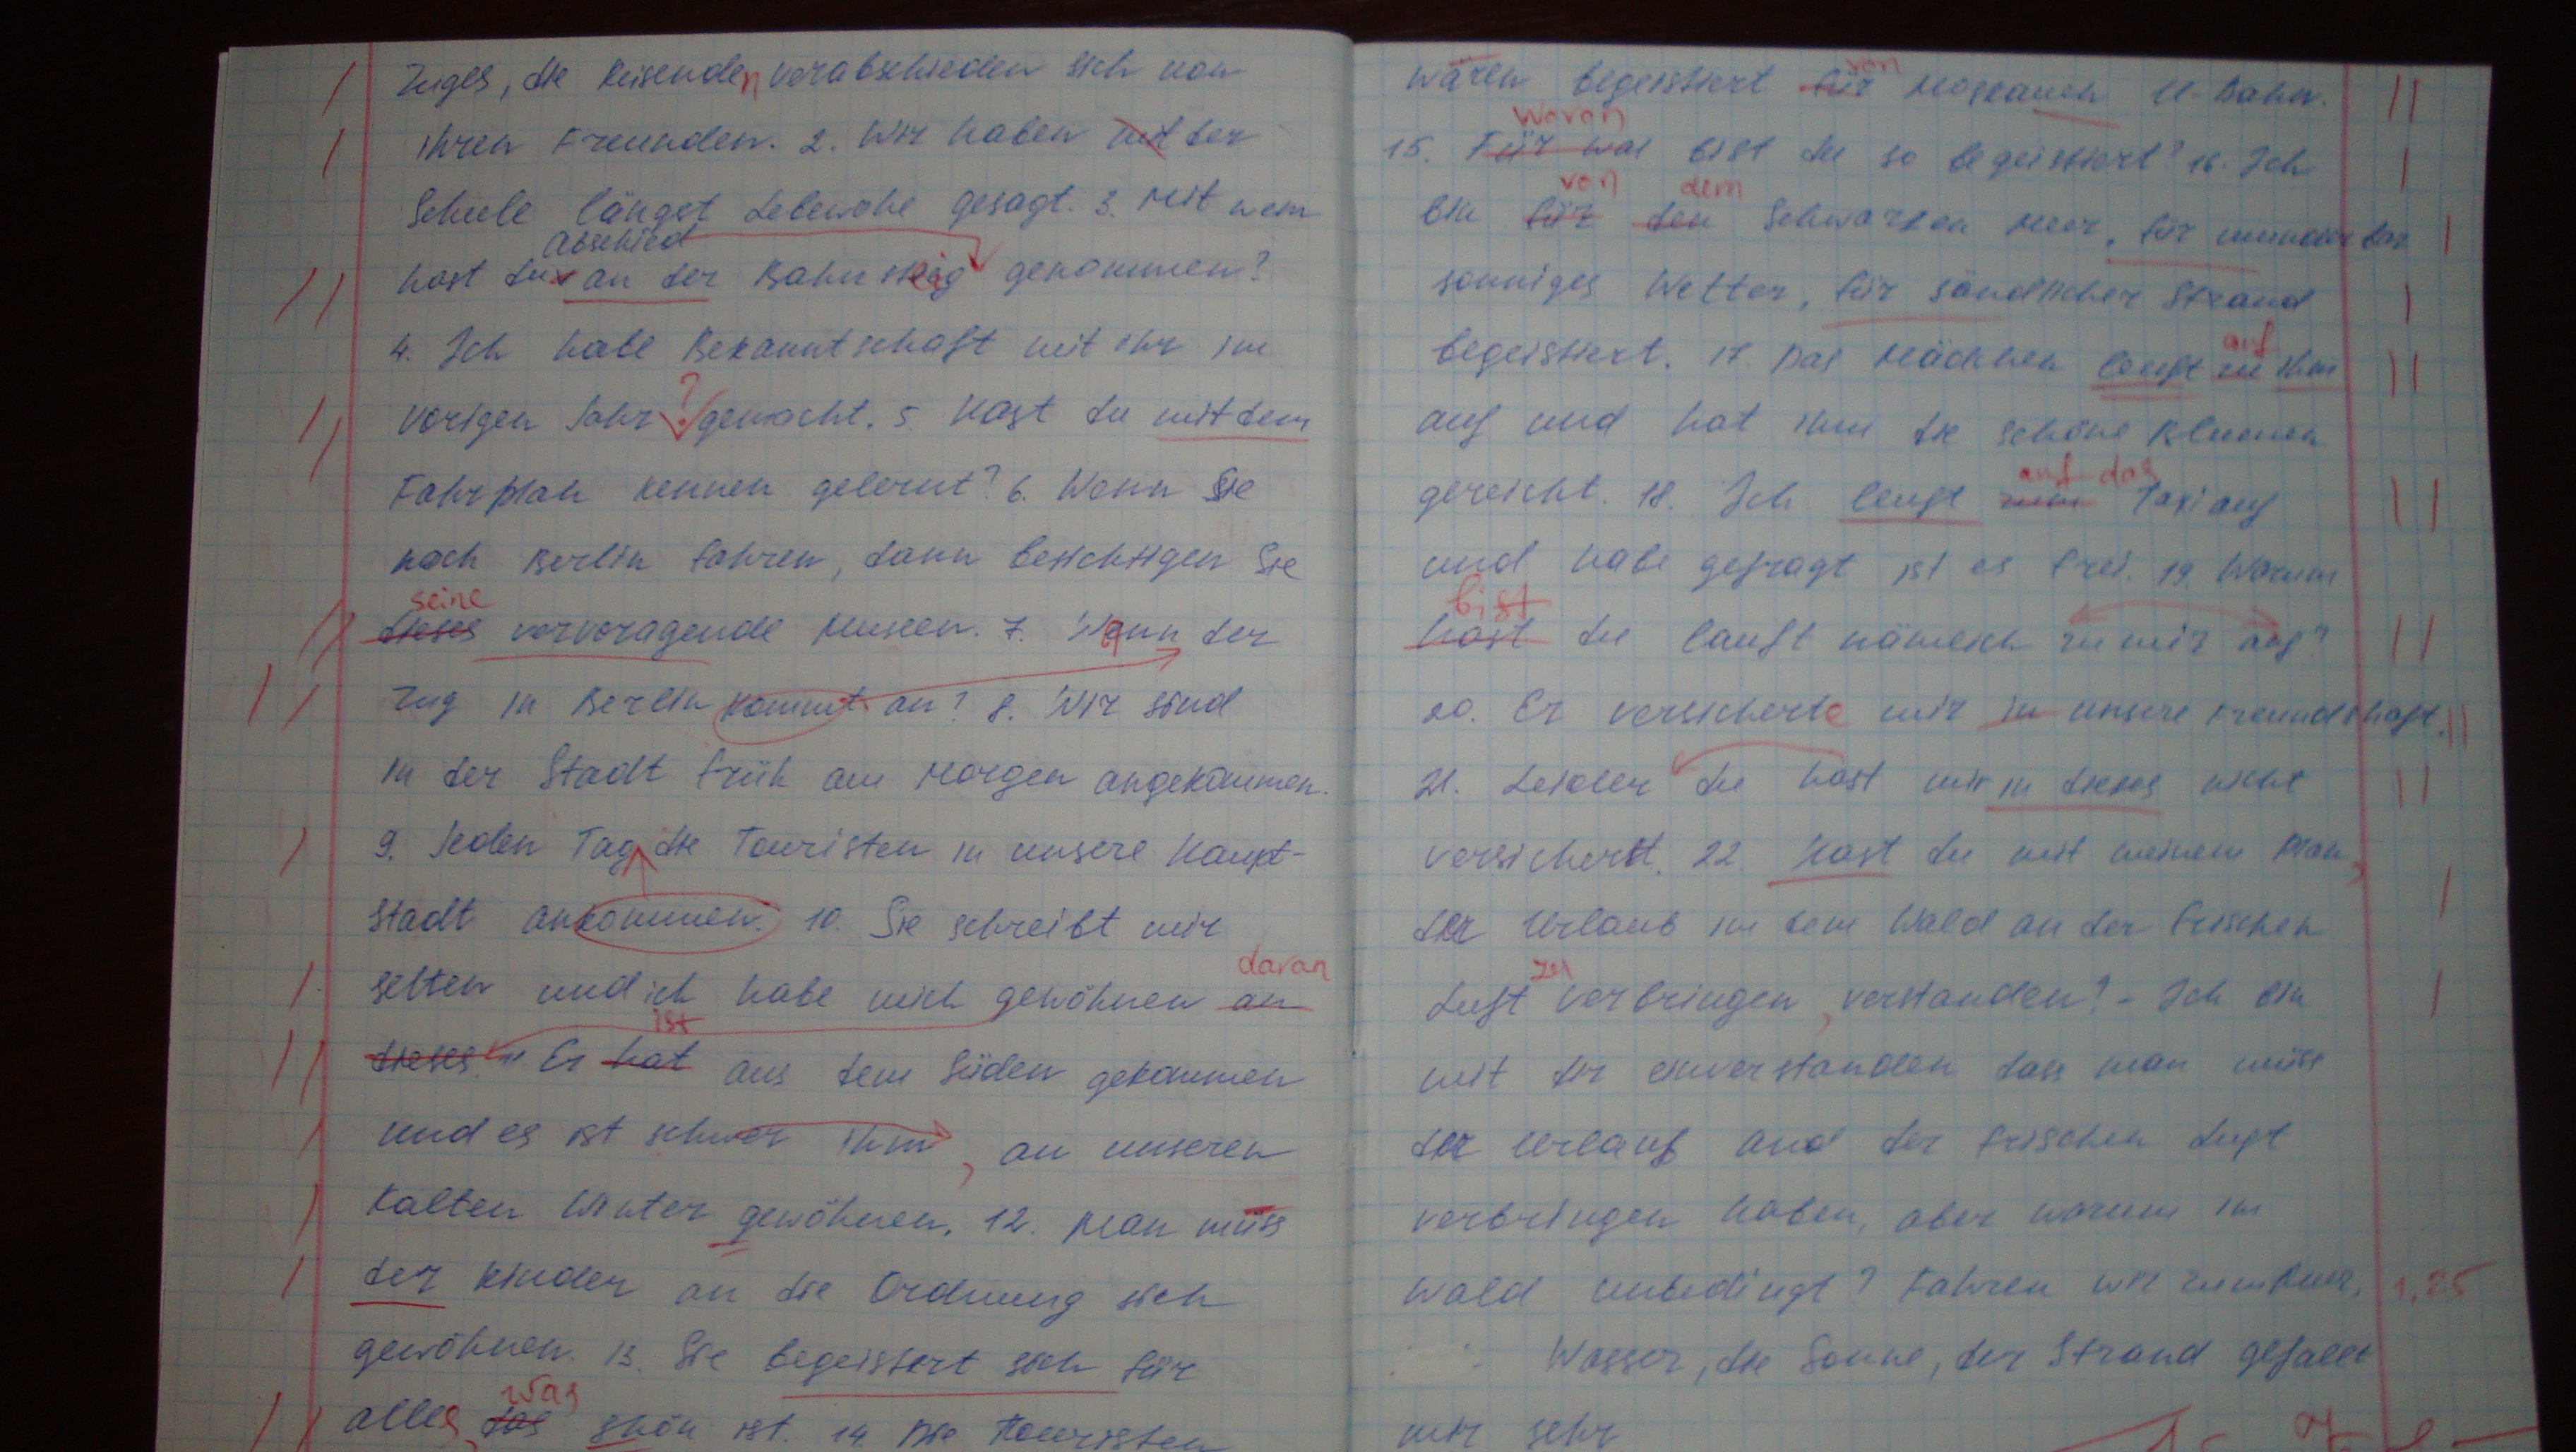 Zuges, die Reisenden verabschieden sich von
ihren Freunden. 2. Wir haben mit der
Schule längst Lebewohe gesagt. 3. Mit wem
Abschied
hast du an der Bahnsteig genommen?
4. Ich habe Bekanntschaft mit ihr im
vorigen Jahr ? gemacht. 5. Hast du mit dem
Fahrplan kennen gelernt? 6. Wenn Sie
nach Berlin fahren, dann besichtigen Sie
seine
dieses vorvoragende Museen. 7. Wann der
Zug in Berlin kommt an? 8. Wir sind
in der Stadt früh am Morgen angekommen.
9. Jeden Tag die Touristen in unsere Haupt-
stadt ankommen. 10. Sie schreibt mir
daran
selten und ich habe mich gewöhnen an
ist
dieses. 11. Er hat aus dem Süden gekommen
und es ist schwer ihm, an unseren
kalten Winter gewöhnen. 12. Man müss
der Kinder an die Ordnung sich
gewöhnen. 13. Sie begeistert sich für
was
alles, das schön ist. 14. Die Touristen
von
wären begeistert für Moskauen U-Bahn.
Woran
15. Für was bist du so begeistiert? 16. Ich
von dem
bin für den Schwarzen Meer, für
sonniges Wetter, für sändlicher Strand
auf
begeistiert. 17. Das Mädchen lauft zu ihm
auf und hat ihm die schöne Blumen
auf das
gereicht. 18. Ich laufe zum Taxi auf
und habe gefragt ist es frei. 19. Warum
bist
hast du lauft nämlich zu mir auf?
20. Er versicherte mir in unsere Freundschaft.
21. Leider du hast mir in dieses nicht
versichert. 22. Hast du mit meinem Plan,
der Urlaub im dem Wald an der frischen
zu
Luft verbringen, verstanden? - Ich bin
mit dir einverstanden dass man müss
der Urlauf and der frischen Luft
verbringen haben, aber warum im
Wald unbedingt? Fahren wir zum Meer, 1,25
Wasser, die Sonne, der Strand gefallt
mir sehr